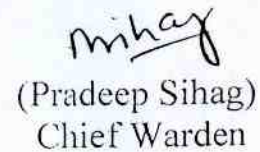 (Pradeep Sihag)
Chief Warden